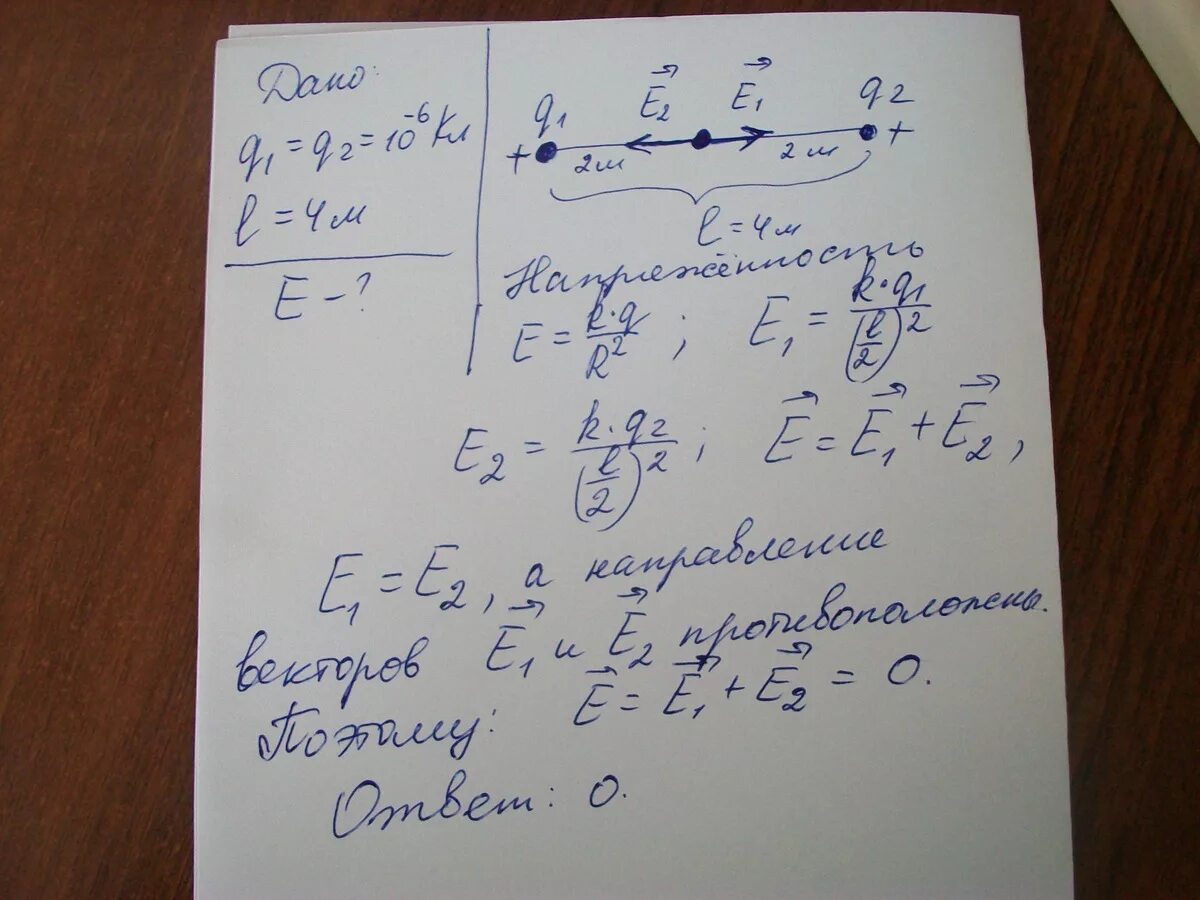 Дано:
q₁ = q₂ = 10⁻⁶ Кл
l = 4 м
E - ?
E⃗₂ E⃗₁
q₁ q₂
+ 2м 2м +
l = 4м
Напряжённость
E = k·q/R² ; E₁ = k·q₁/(l/2)²
E₂ = k·q₂/(l/2)² ; E⃗ = E⃗₁ + E⃗₂,
E₁ = E₂, а направление
векторов E⃗₁ и E⃗₂ противоположны.
Поэтому: E⃗ = E⃗₁ + E⃗₂ = 0.
Ответ: 0.